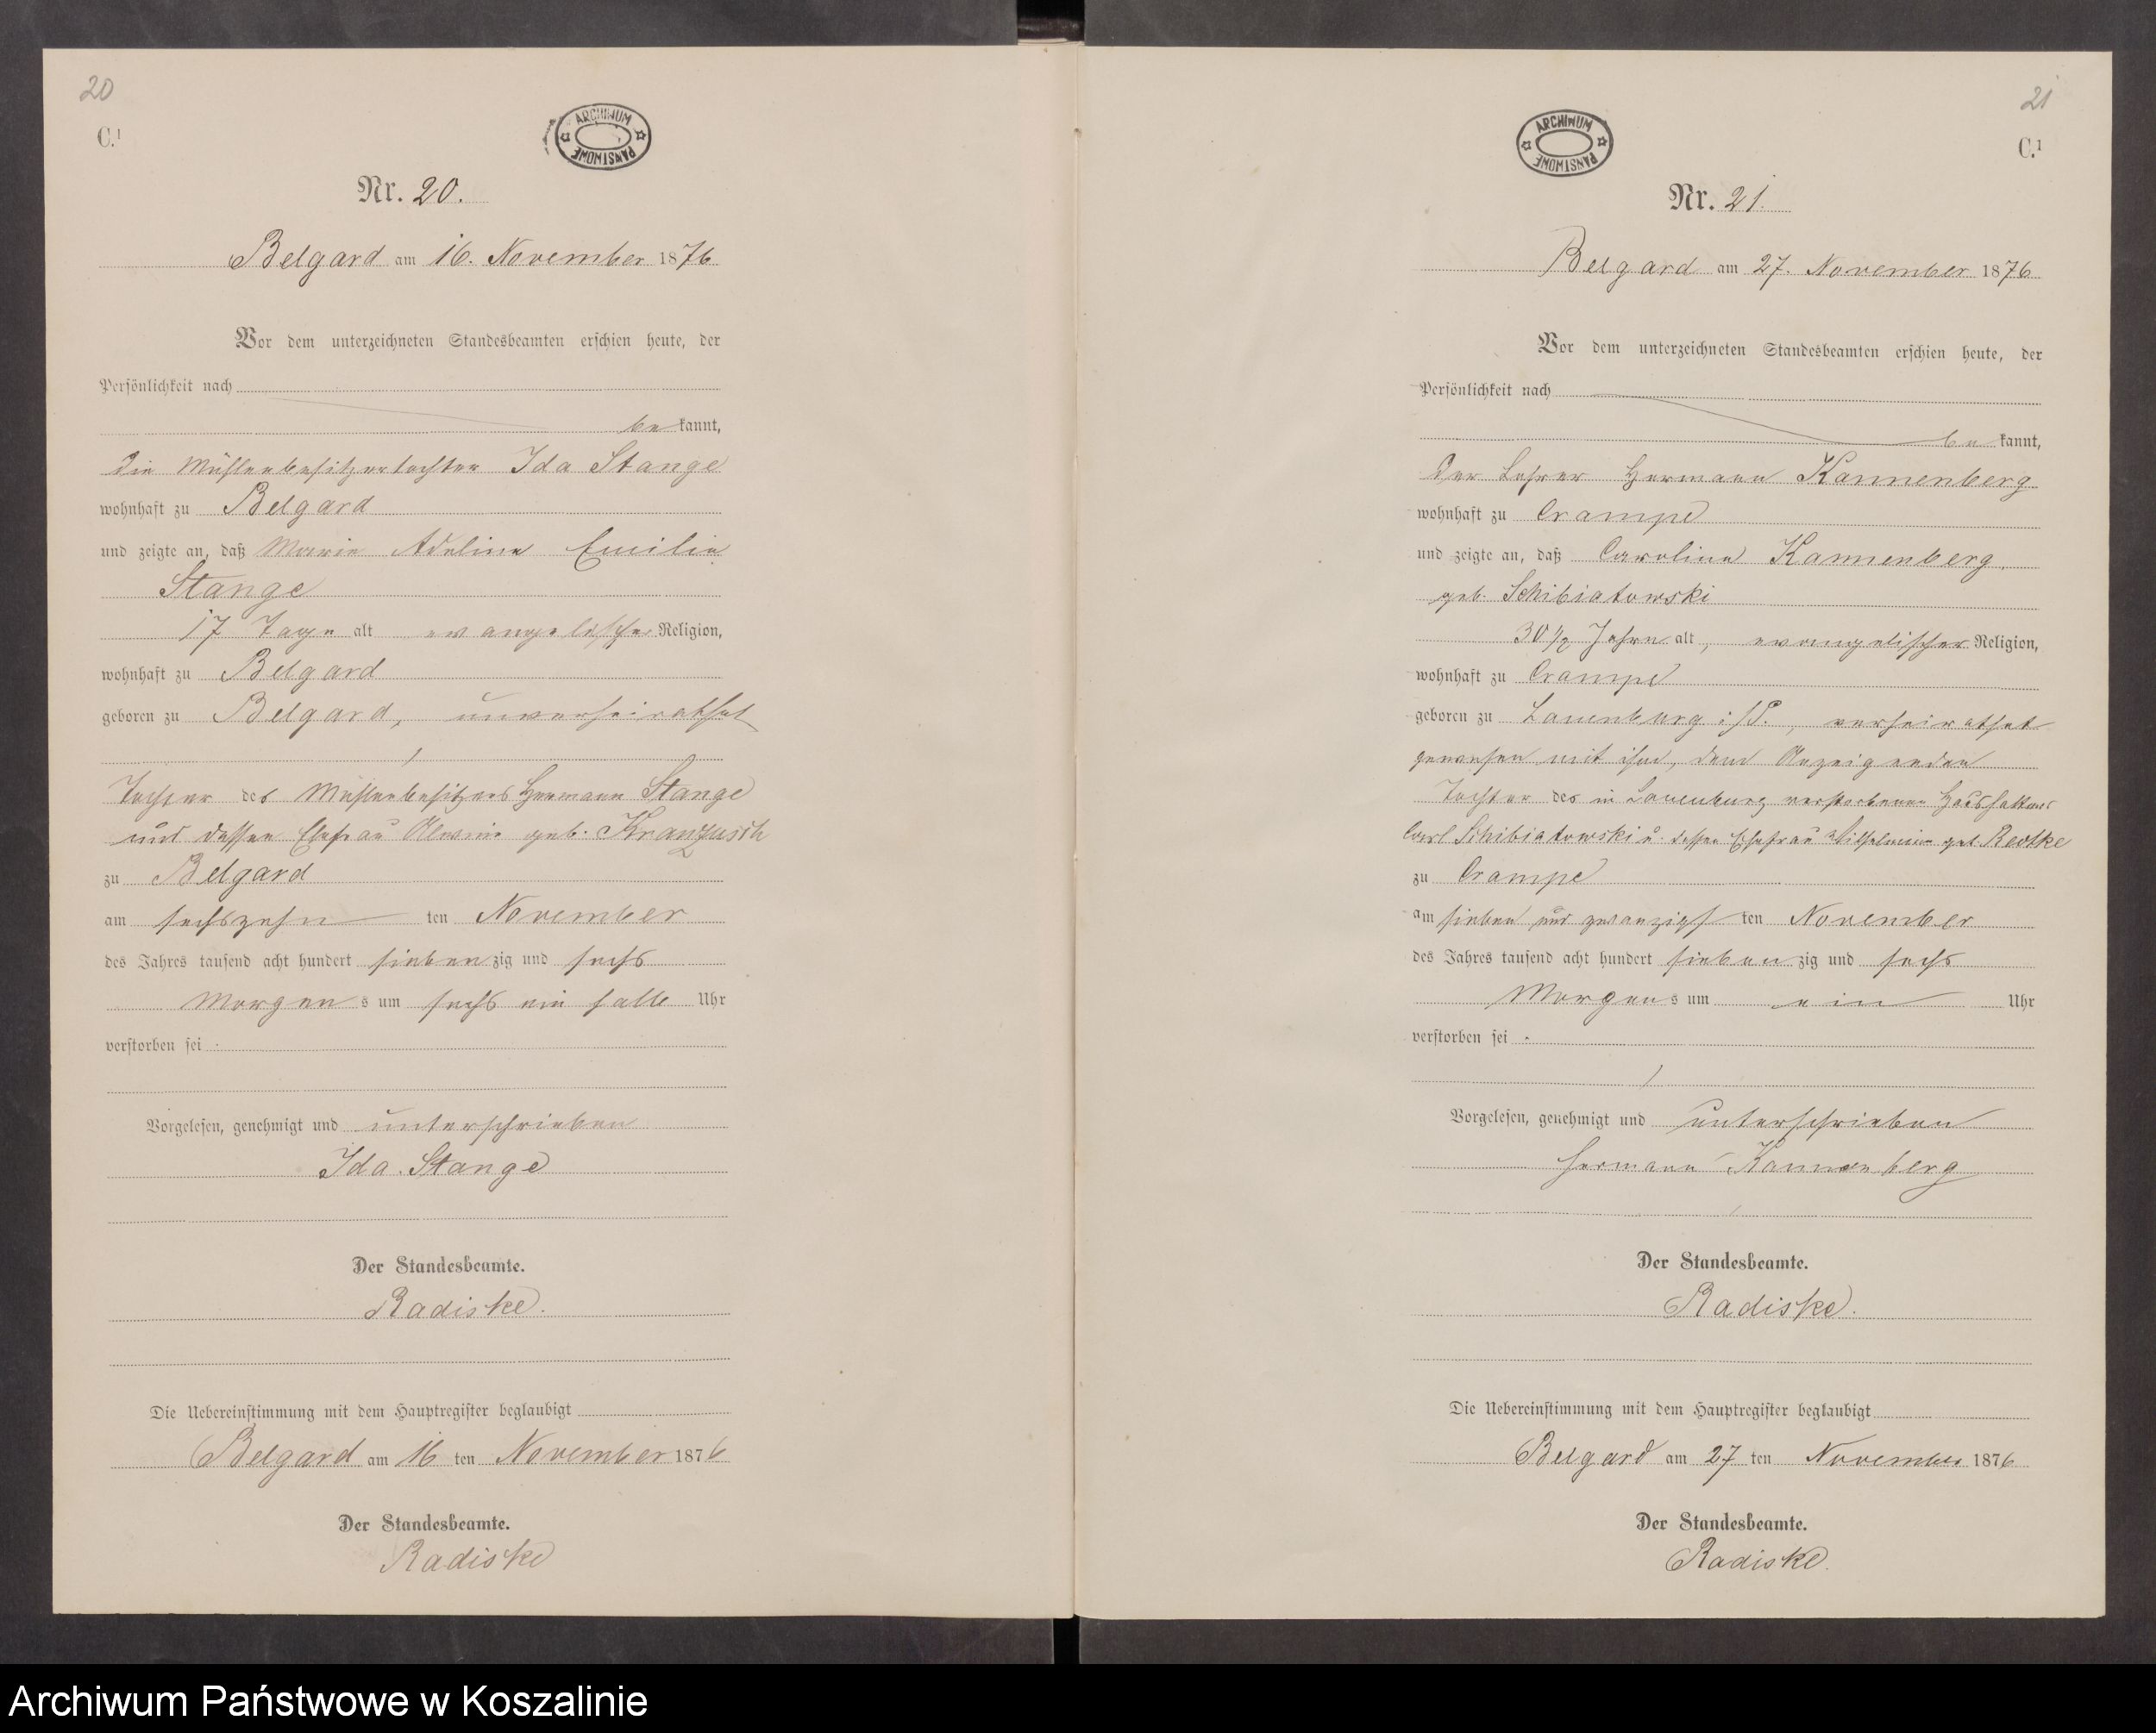 20
C.¹
ARCHIWUM PAŃSTWOWE
Nr. 20.
Belgard am 16. November 1876
Vor dem unterzeichneten Standesbeamten erschien heute, der
Persönlichkeit nach
be kannt,
die Mühlenbesitzertochter Ida Stange
wohnhaft zu Belgard
und zeigte an, daß Marie Adeline Emilie
Stange
17 Tage alt evangelischer Religion,
wohnhaft zu Belgard
geboren zu Belgard, unverheirathet
Tochter des Mühlenbesitzers Hermann Stange
und dessen Ehefrau Alwine geb. Kranzusch
zu Belgard
am sechszehn ten November
des Jahres tausend acht hundert sieben zig und sechs
Morgen s um sechs ein halb Uhr
verstorben sei .
Vorgelesen, genehmigt und unterschrieben
Ida Stange
Der Standesbeamte.
Radiske.
Die Uebereinstimmung mit dem Hauptregister beglaubigt
Belgard am 16 ten November 1876
Der Standesbeamte.
Radiske
21
C.¹
ARCHIWUM PAŃSTWOWE
Nr. 21.
Belgard am 27. November 1876
Vor dem unterzeichneten Standesbeamten erschien heute, der
Persönlichkeit nach
be kannt,
der Lehrer Hermann Kannenberg
wohnhaft zu Crampe
und zeigte an, daß Caroline Kannenberg,
geb. Schibiatowski
30 1/2 Jahre alt, evangelischer Religion,
wohnhaft zu Crampe
geboren zu Lauenburg i/P., verheirathet
gewesen mit ihm, dem Anzeigenden
Tochter des in Lauenburg verstorbenen
Carl Schibiatowski u. dessen Ehefrau Wilhelmine geb. Redtke
zu Crampe
am sieben und zwanzigs ten November
des Jahres tausend acht hundert sieben zig und sechs
Morgen s um ein Uhr
verstorben sei .
Vorgelesen, genehmigt und unterschrieben
Hermann Kannenberg
Der Standesbeamte.
Radiske.
Die Uebereinstimmung mit dem Hauptregister beglaubigt
Belgard am 27 ten November 1876
Der Standesbeamte.
Radiske.
Archiwum Państwowe w Koszalinie